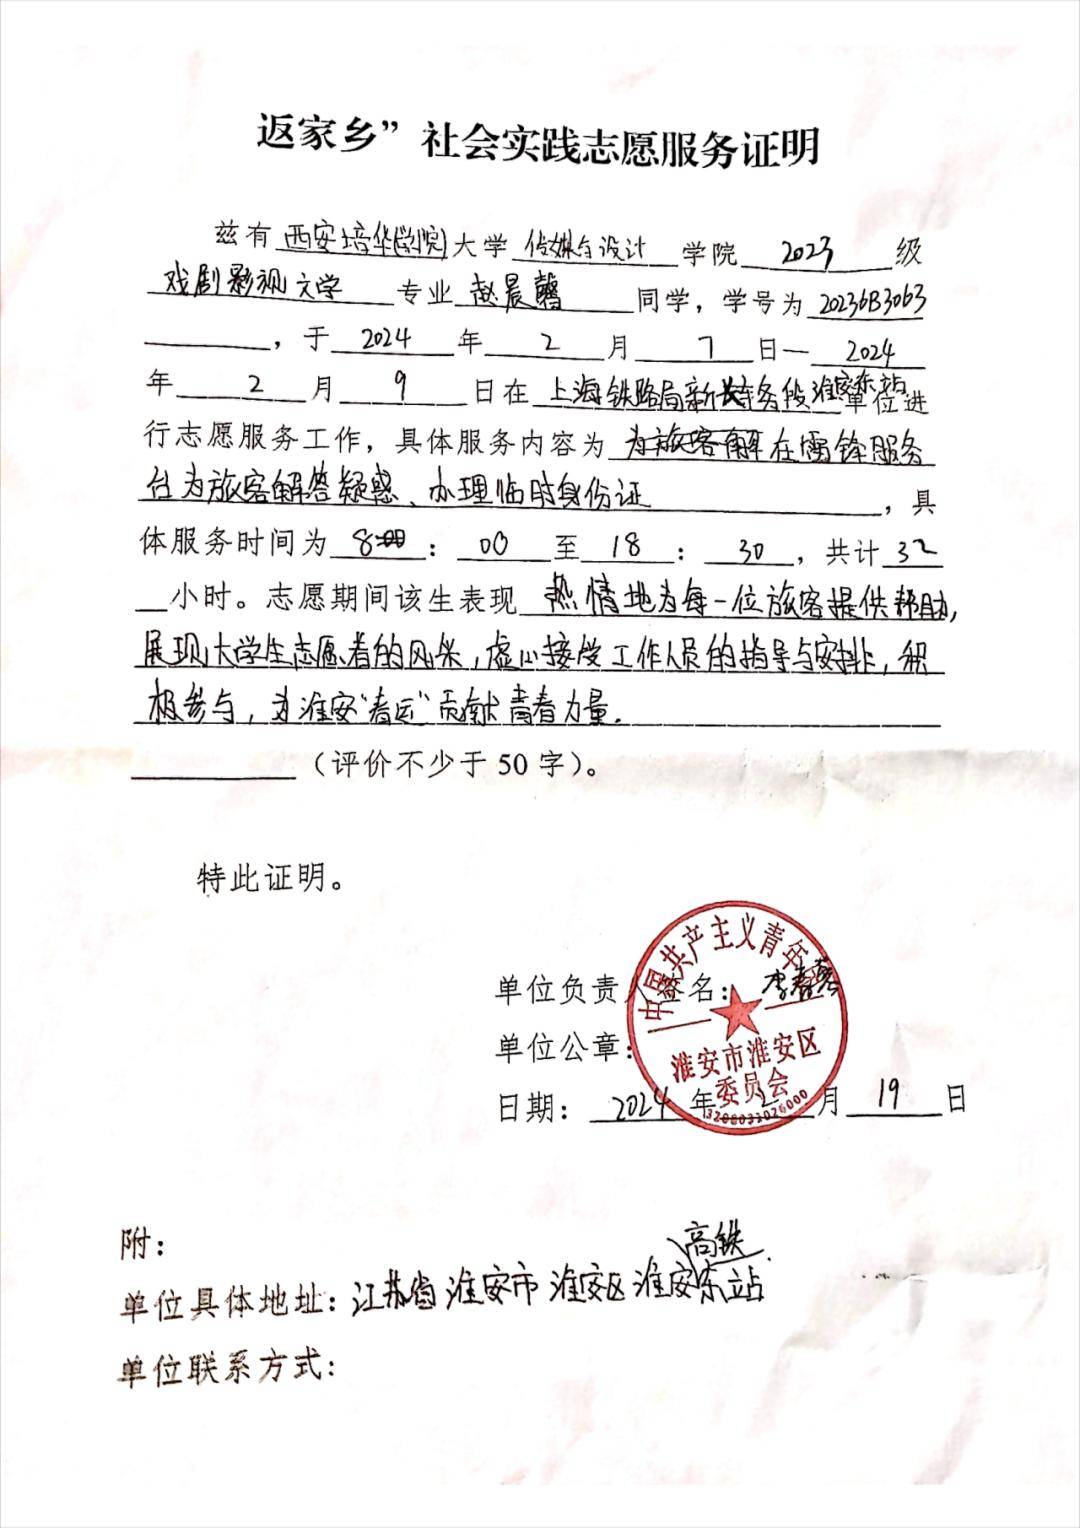 返家乡”社会实践志愿服务证明
兹有 西安培华学院 大学 传媒与设计 学院 2023 级
戏剧影视文学 专业 赵晨馨 同学，学号为 20236B3063
，于 2024 年 2 月 7 日— 2024
年 2 月 9 日在 上海铁路局新长车务段淮安东站 单位进
行志愿服务工作，具体服务内容为 在雷锋服务
台为旅客解答疑惑、办理临时身份证 ，具
体服务时间为 8 : 00 至 18 : 30 ，共计 32
小时。志愿期间该生表现 热情地为每一位旅客提供帮助,
展现大学生志愿者的风采,虚心接受工作人员的指导与安排,积
极参与,为淮安“春运”贡献青春力量.
（评价不少于 50 字）。
特此证明。
单位负责人签名： 李春
单位公章：
日期： 2024 年 2 月 19 日
中国共产主义青年团
淮安市淮安区
委员会
3208033026000
附：
单位具体地址：江苏省淮安市淮安区淮安东站
高铁
单位联系方式：